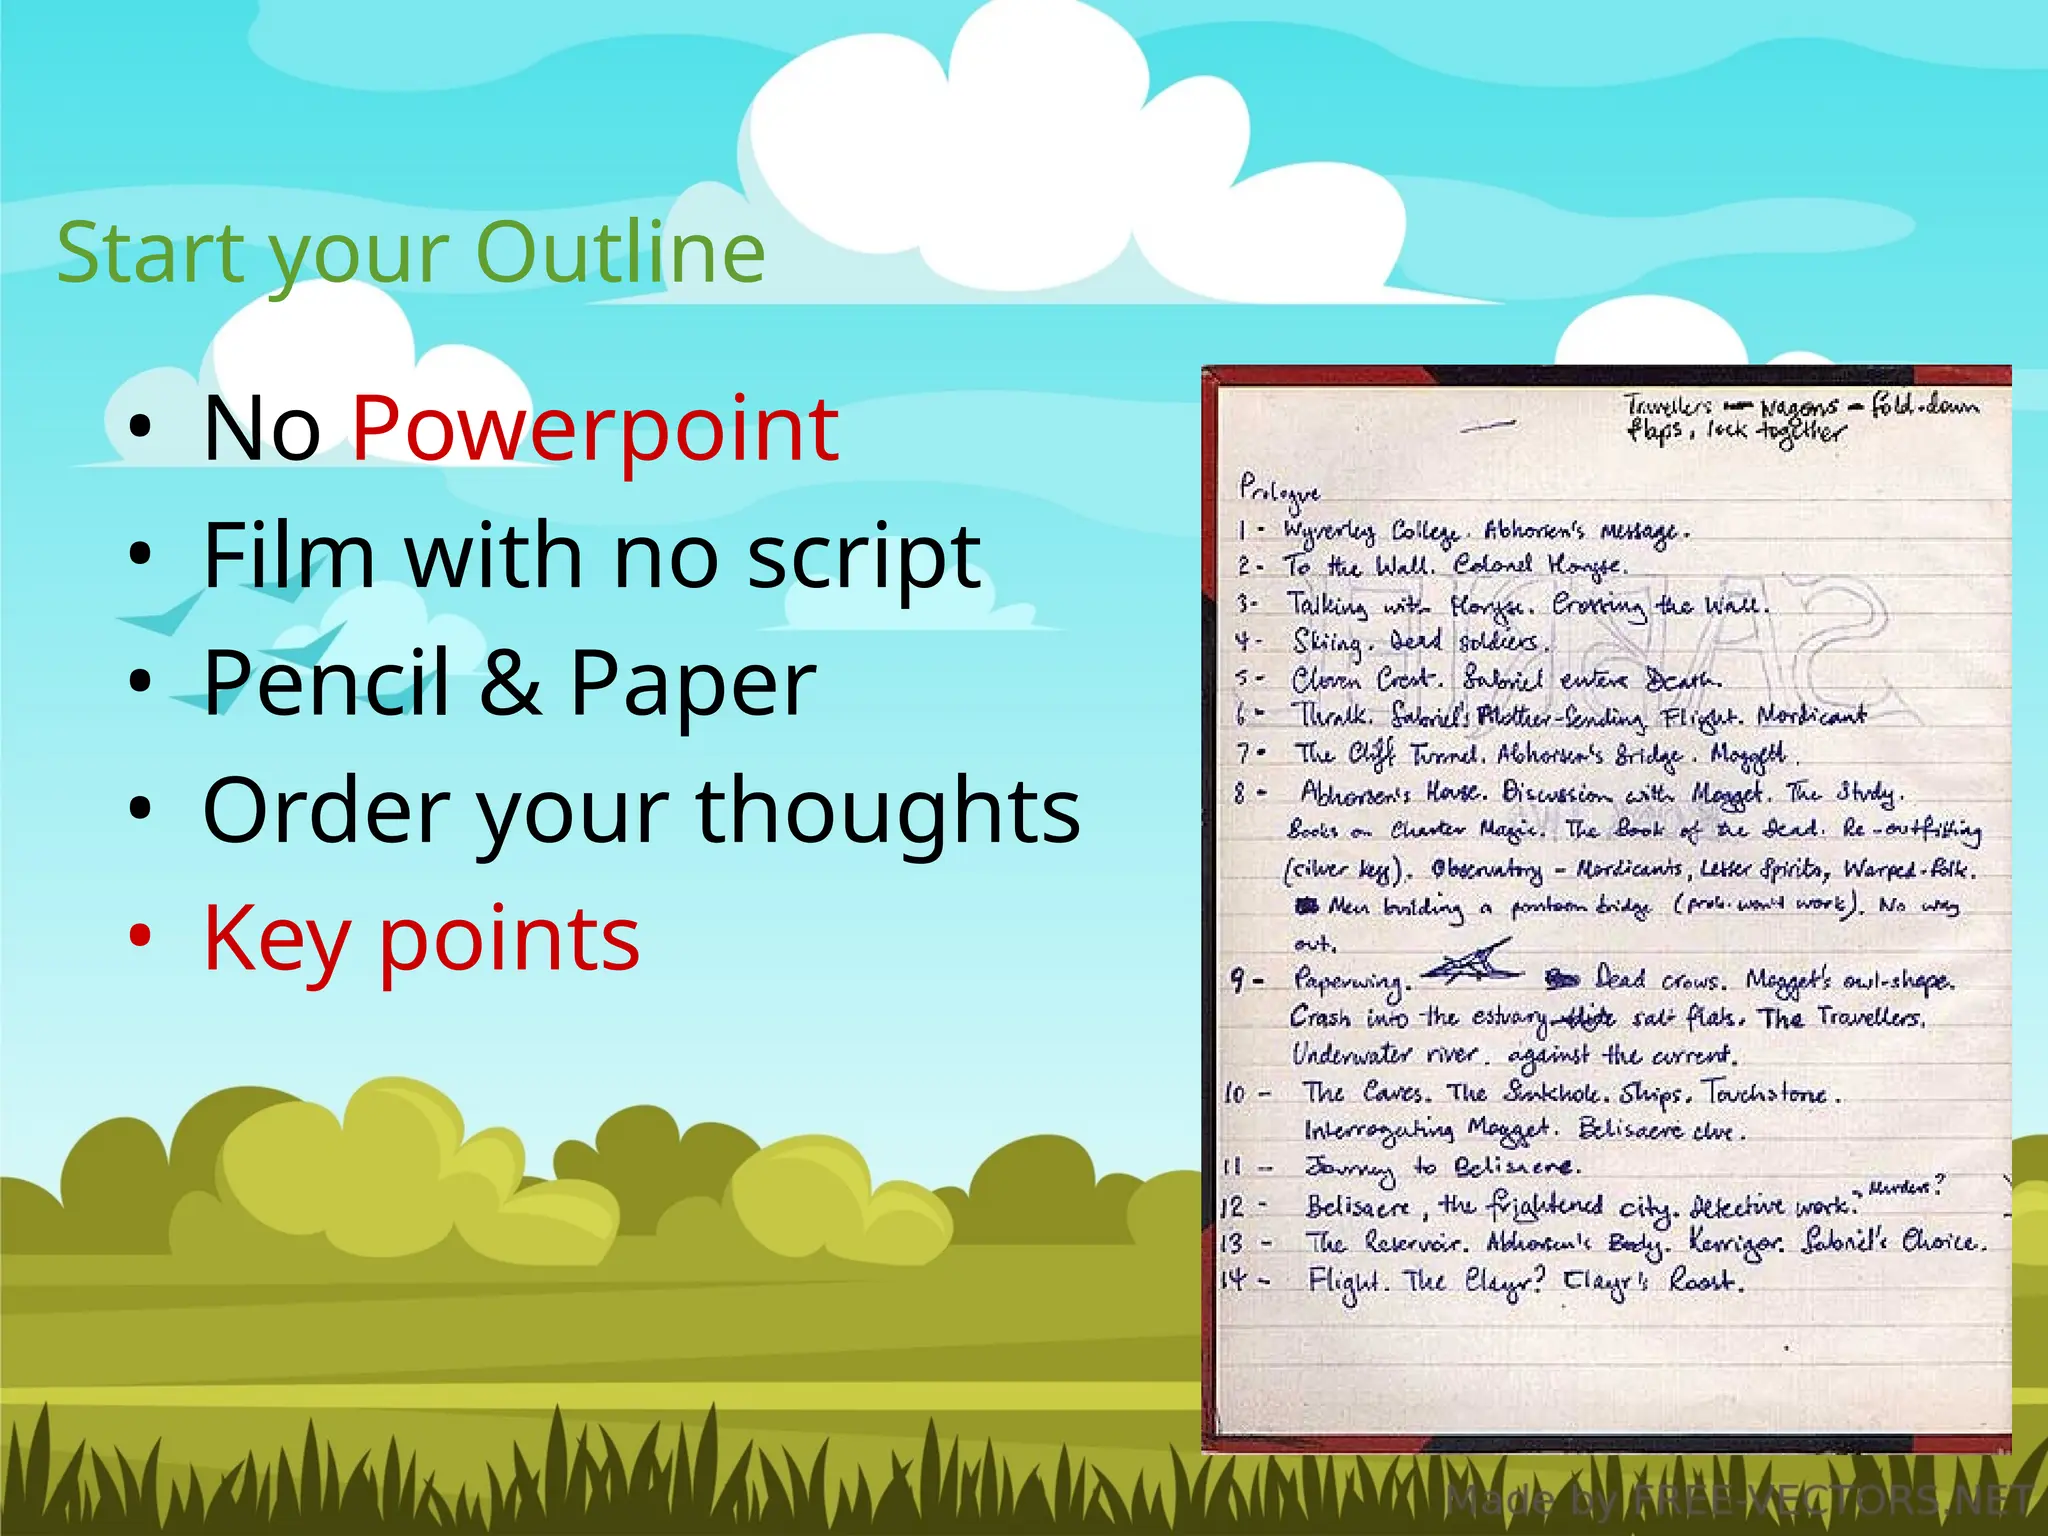 Start your Outline
• No Powerpoint
• Film with no script
• Pencil & Paper
• Order your thoughts
• Key points
Travellers - wagons - fold-down
flaps, lock together
Prologue
1 - Wyverley College. Abhorsen's message.
2 - To the Wall. Colonel Horyse.
3 - Talking with Horyse. Crossing the Wall.
4 - Skiing. Dead soldiers.
5 - Cloven Crest. Sabriel enters Death.
6 - Thralk. Sabriel's Mother-Sending. Flight. Mordicant
7 - The Cliff Tunnel. Abhorsen's Bridge. Moggett.
8 - Abhorsen's House. Discussion with Mogget. The Study.
Books on Charter Magic. The Book of the Dead. Re-outfitting
(silver key). Observatory - Mordicants, Lesser Spirits, Warped-folk.
Men building a pontoon bridge (prob. won't work). No way
out.
9 - Paperwing. Dead crows. Mogget's owl-shape.
Crash into the estuary salt flats. The Travellers.
Underwater river. against the current.
10 - The Caves. The Sinkhole. Ships. Touchstone.
Interrogating Mogget. Belisaere clue.
11 - Journey to Belisaere.
12 - Belisaere, the frightened city. Detective work. Murders?
13 - The Reservoir. Abhorsen's Body. Kerrigor. Sabriel's Choice.
14 - Flight. The Clayr? Clayr's Roost.
SABRIEL
Made by FREE-VECTORS.NET